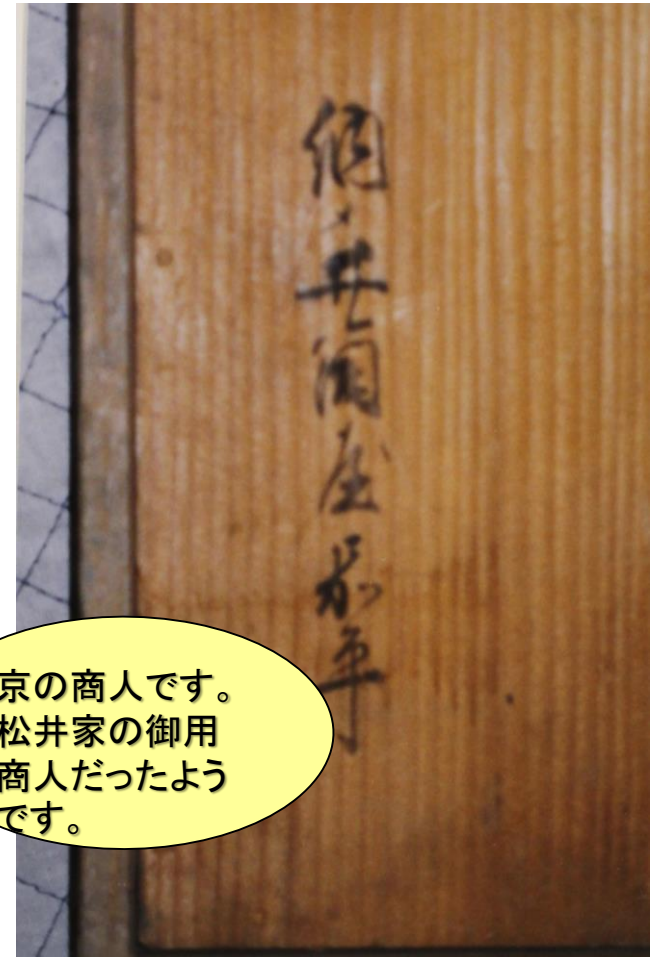 井筒屋
京の商人です。
松井家の御用
商人だったよう
です。